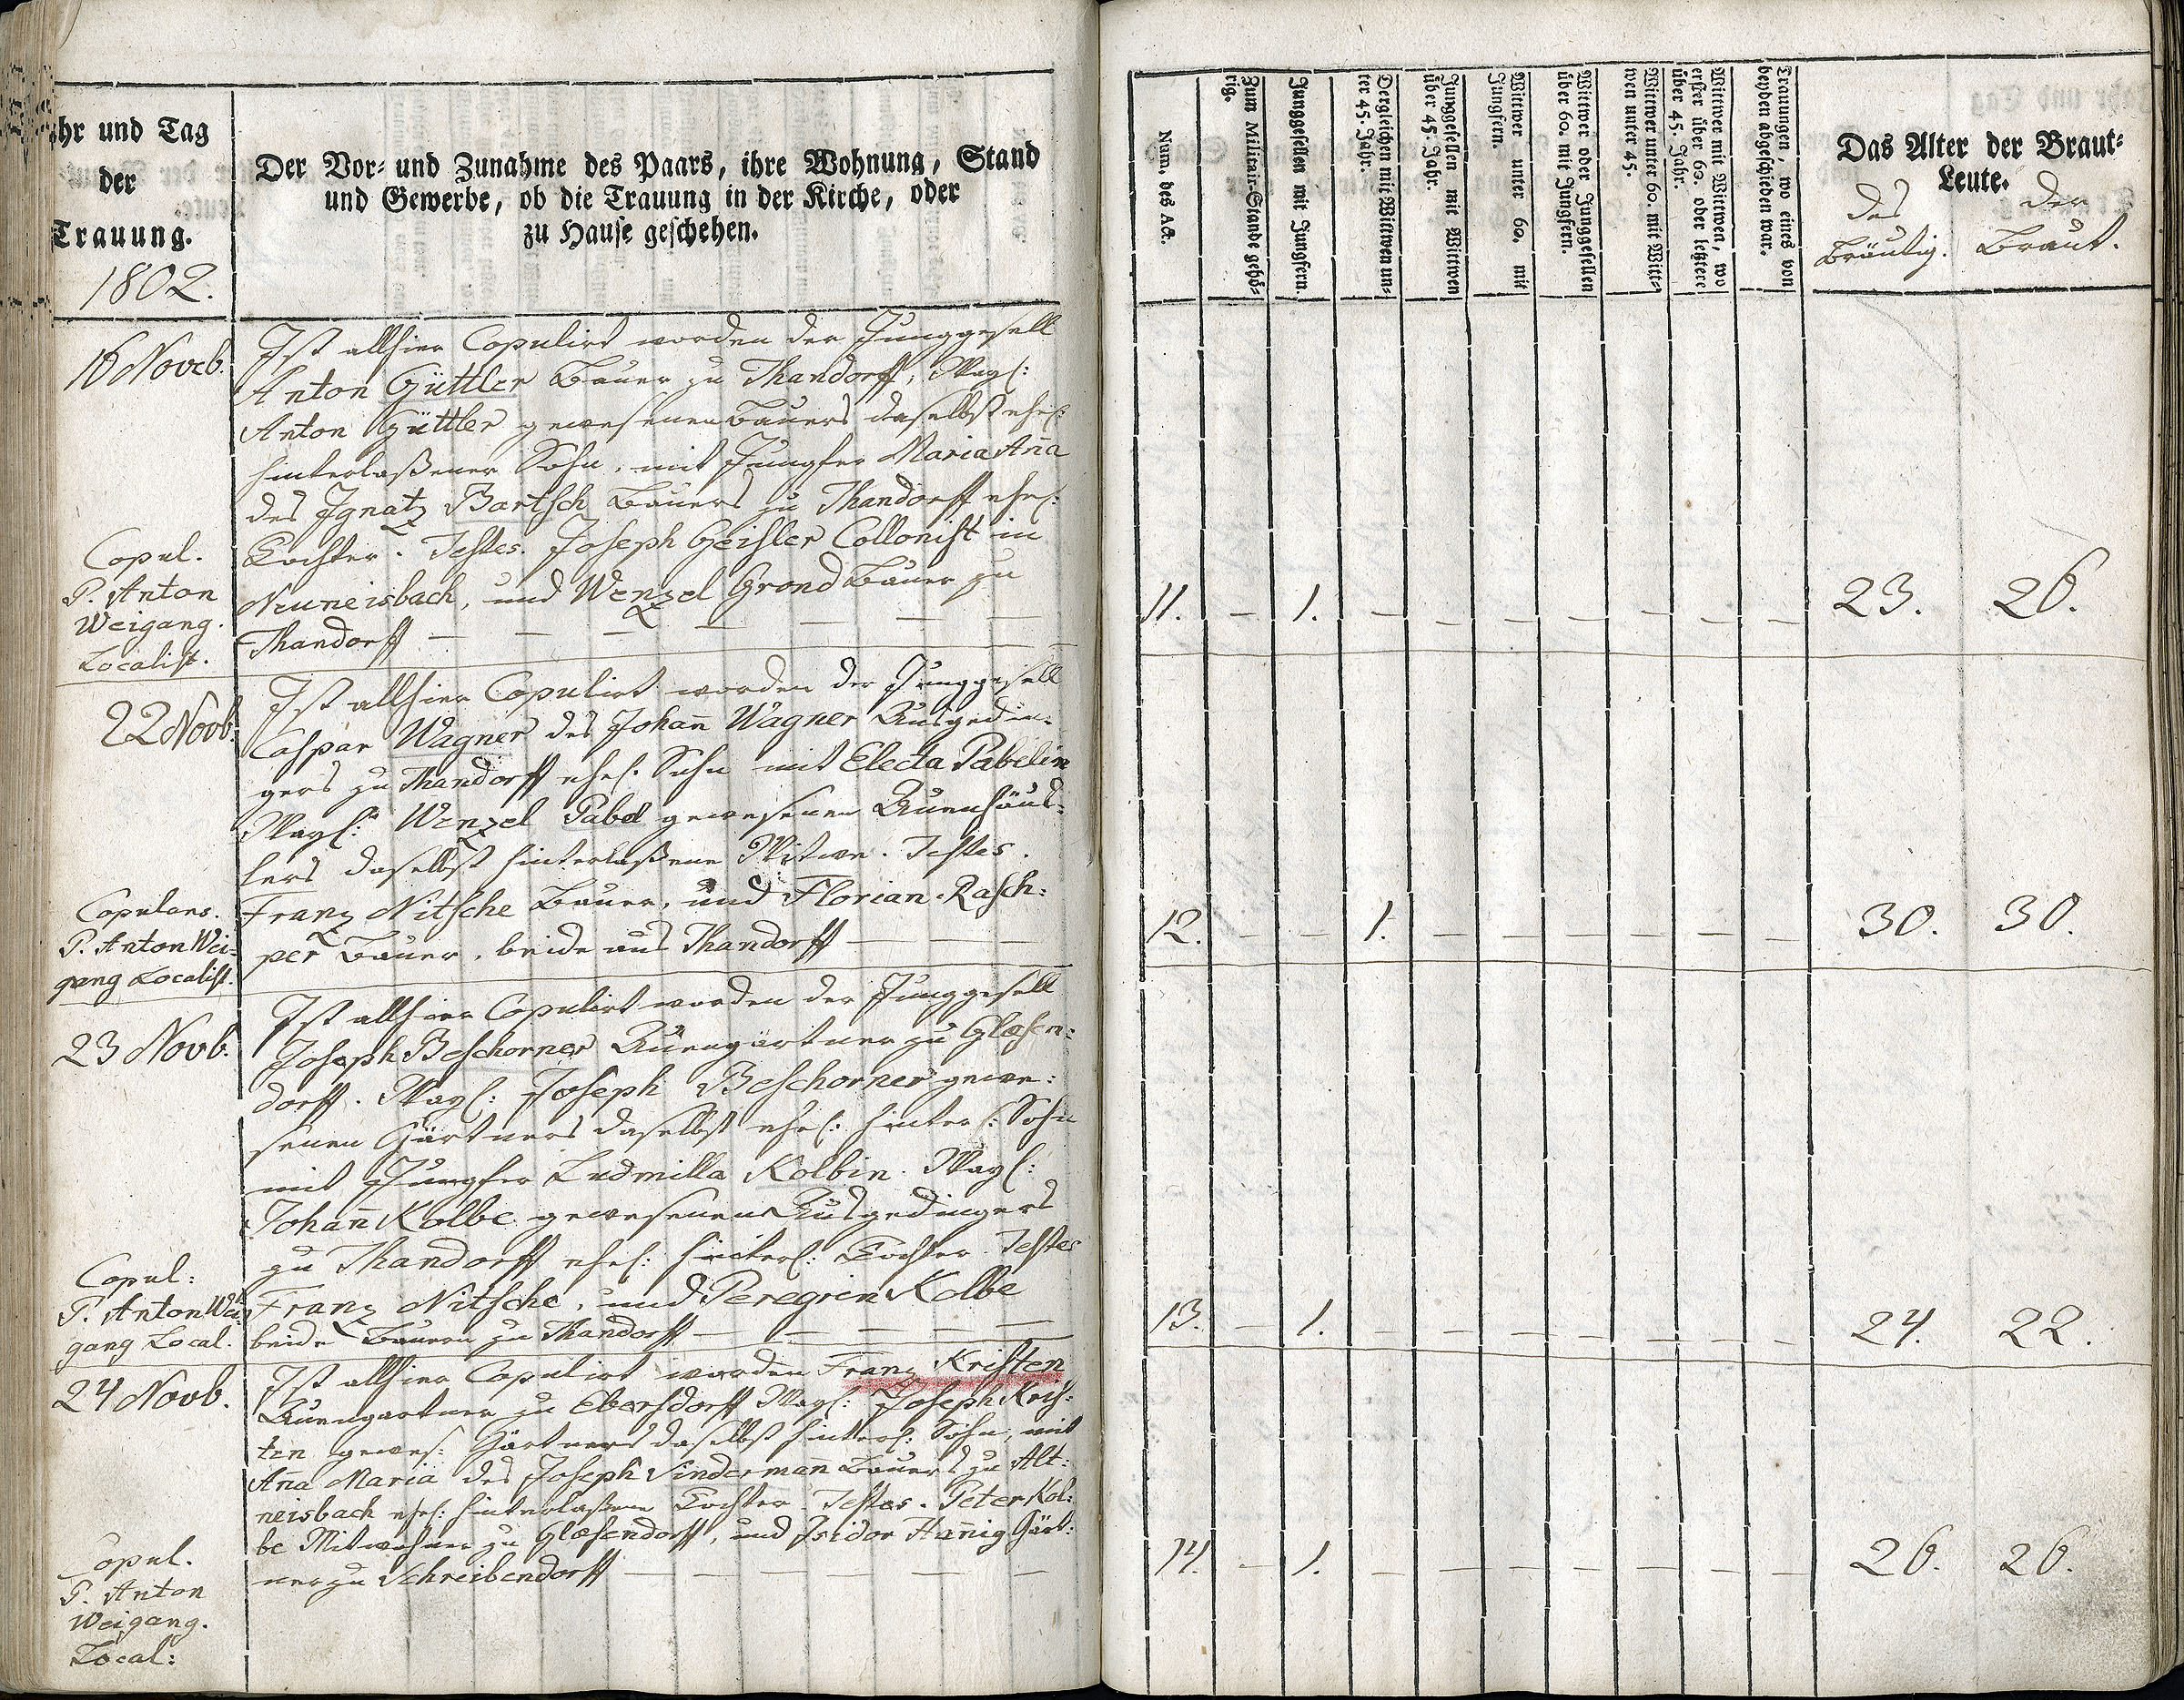 Jahr und Tag
der
Trauung.
1802.
Der Vor- und Zunahme des Paars, ihre Wohnung, Stand
und Gewerbe, ob die Trauung in der Kirche, oder
zu Hause geschehen.
16 Novb.
Ist allhier Copulirt worden der Junggesell
Anton Güttler Bauer zu Thandorff, Weyl:
Anton Güttler gewesenen Bauers daselbst ehel:
hinterlaßener Sohn, mit Jungfer Maria Anna
des Ignatz Bartsch Bauers zu Thandorff ehel:
Tochter. Testes. Joseph Geisler Collonist in
Neuneisbach, und Wenzel Grond Bauer zu
Thandorff
Copul.
P. Anton
Weigang.
Localist.
22 Novb.
Ist allhier Copulirt worden der Junggesell
Caspar Wagner des Johann Wagner Ausgedin-
gers zu Thandorff ehel. Sohn mit Electa Pabelin
Weyl: Wenzel Pabel gewesenen Auenhäus-
lers daselbst hinterlaßene Witwe. Testes.
Franz Nitsche Bauer, und Florian Rasch:
per Bauer, beide aus Thandorff
Copulans.
P. Anton Wei-
gang Localist.
23 Novb.
Ist allhier Copulirt worden der Junggesell
Joseph Beschorner Auengärtner zu Glasen:
dorff. Weyl: Joseph Beschorner gewe:
senen Gärtners daselbst ehel: hinterl: Sohn
mit Jungfer Ludmilla Kolbin. Weyl:
Johann Kolbe gewesenen Ausgedingers
zu Thandorff ehel: hinterl: Tochter. Testes
Franz Nitsche, und Peregrin Kolbe
beide Bauern zu Thandorff
Copul:
P. Anton Wei-
gang Local.
24 Novb.
Ist allhier Copulirt worden Franz Kristen
Auengartner zu Ebersdorff Weyl: Joseph Kris:
ten gewes: Gärtners daselbst hinterl: Sohn, mit
Anna Maria des Joseph Sindermann Bauers zu Alt:
neisbach ehel: hinterlaßene Tochter. Testes. Peter Kol:
be Mitwohner zu Glasendorff, und Isidor Hannig Gärt:
ner zu Schreibendorff
Copul.
P. Anton
Weigang.
Local:
Num. des Act.
Zum Militair-Stande gehö-
rig.
Junggesellen mit Jungfern.
Dergleichen mit Wittwen un-
ter 45. Jahr.
Junggesellen mit Wittwen
über 45. Jahr.
Wittwer unter 60. mit
Jungfern.
Wittwer oder Junggesellen
über 60. mit Jungfern.
Wittwer unter 60. mit Witt-
wen unter 45.
Wittwer mit Witwen, wo
erster über 60. oder letztere
über 45. Jahr.
Trauungen, wo eines von
beyden abgeschieden war.
Das Alter der Braut-
Leute.
des
Bräutig.
der
Braut.
11. – 1. – – – – – – – 23. 26.
12. – – 1. – – – – – – 30. 30.
13. – 1. – – – – – – – 24. 22.
14. – 1. – – – – – – – 26. 26.